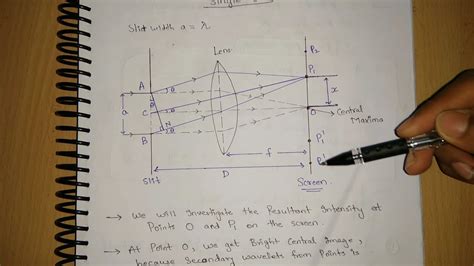 Single
Slit width a = λ
Lens
P₂
A θ θ P₁
a C θ x
O → Central Maxima
B N θ
P₁'
f
P₂'
Slit D Screen
→ We will Investigate the Resultant Intensity at
Points O and P₁ on the screen.
→ At Point O, we get Bright Central Image,
because Secondary wavelets from Points is